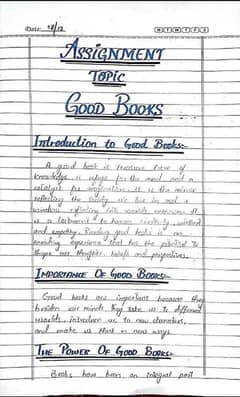 Date: 28/12
MTWTFSS
ASSIGNMENT
TOPIC
GOOD BOOKS
Introduction to Good Books:-
A good book is treasure trove of
knowledge, a refuge for the soul, and a
catalyst for imagination. It is the mirror
reflecting the society we live in and a
window into worlds unknown. It
is a testament to human creativity,
and empathy. Reading good books is an
enriching experience that has the potential to
shape our thoughts, beliefs and perspectives.
IMPORTANCE OF GOOD BOOKS:-
Good books are important because they
broaden our minds, they take us to different
worlds, introduce us to new characters,
and make us think in new ways.
THE POWER OF GOOD BOOKS:-
Books have been an integral part